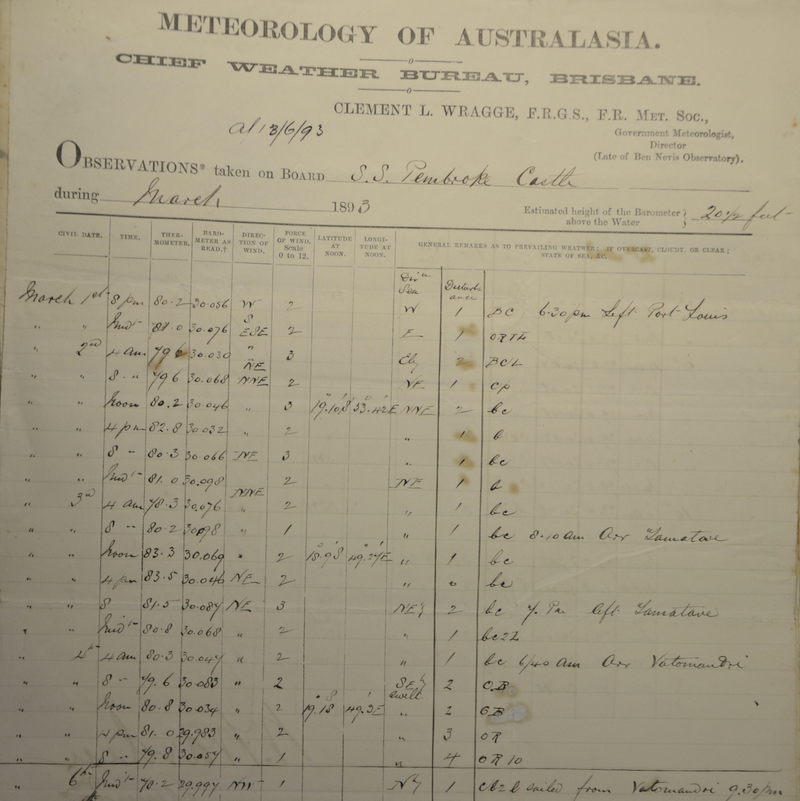 METEOROLOGY OF AUSTRALASIA.
CHIEF WEATHER BUREAU, BRISBANE.
CLEMENT L. WRAGGE, F.R.G.S., F.R. MET. SOC.,
Government Meteorologist,
Director
(Late of Ben Nevis Observatory).
OBSERVATIONS* taken on BOARD S.S. Pembroke Castle
during March 1893
Estimated height of the Barometer above the Water } 20½ feet
CIVIL DATE. TIME. THERMOMETER. BAROMETER AS READ.† DIRECTION OF WIND. FORCE OF WIND. Scale 0 to 12. LATITUDE AT NOON. LONGITUDE AT NOON. GENERAL REMARKS AS TO PREVAILING WEATHER; IF OVERCAST, CLOUDY, OR CLEAR; STATE OF SEA, &c.
Sea Disturbance
March 1st 8 pm 80.2 30.056 W 2 W 1 BC 6.30 pm Left Port Louis
" " Mid't 81.0 30.076 ESE 2 E 1
" 2nd 4 am 79.6 30.030 " 3 2 BCL
" " 8 " 79.6 30.068 NNE 2 NE 1 CP
" " Noon 80.2 30.046 " 3 19.10.S 53.42E NNE 2 bc
" " 4 pm 82.8 30.032 " 2 " 1
" " 8 " 80.3 30.066 NE 3 " 1 bc
" " Mid't 81.0 30.098 2 NE 1
" 3rd 4 am 78.3 30.076 NNE 2 " 1 bc
" " 8 " 80.2 30.098 " 1 " 1 bc 8.10 am Arr Tamatave
" " Noon 83.3 30.069 " 2 18.9S 49.27E " 1 bc
" " 4 pm 83.5 30.046 NE 2 " 0 bc
" " 8 81.5 30.087 NE 3 NEy 2 bc 7. Pm left Tamatave
" " Mid't 80.8 30.068 " 2 " 1
" 4th 4 am 80.3 30.047 " 2 " 1 bc 6/40 am Arr Vatomandri
" " 8 " 79.6 30.083 " 2 SEy swell 2 C.B
" " Noon 80.8 30.034 " 2 19.18 S 49.3E " 2
" " 4 pm 81.0 29.983 " 2 " 3 OR
" " 8 " 79.8 30.057 " 1 " 4 OR 10
" 6th Mid't 78.2 29.997 NW 1 Ny 1 sailed from Vatomandri 9.30 pm